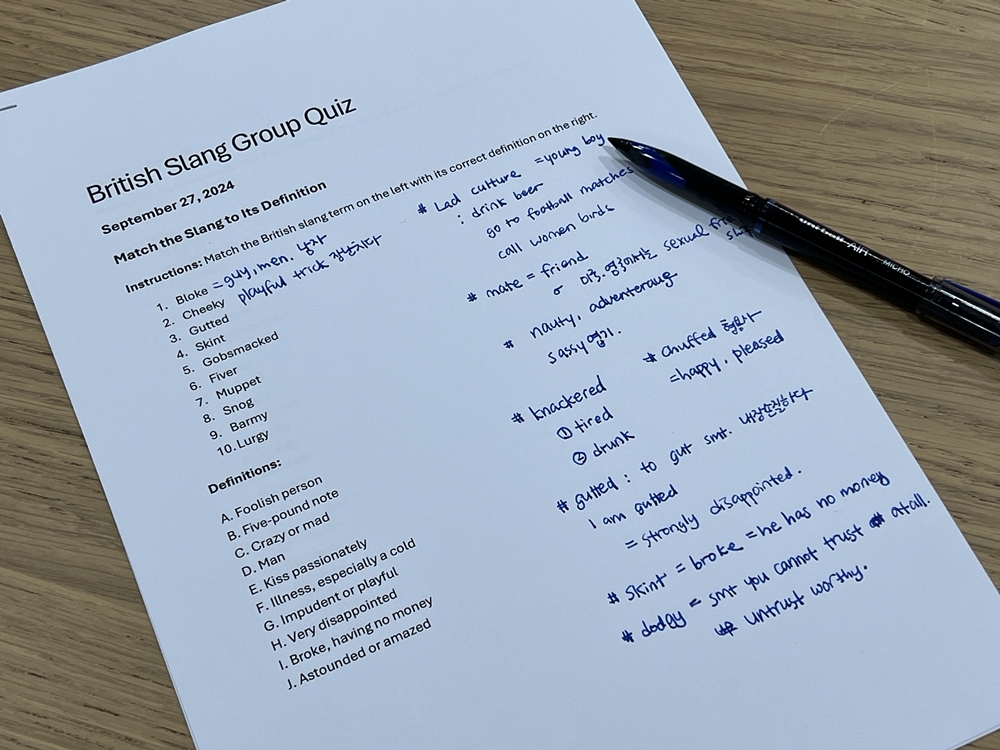 British Slang Group Quiz
September 27, 2024
Match the Slang to Its Definition
Instructions: Match the British slang term on the left with its correct definition on the right.
1. Bloke = guy, men. 남자
2. Cheeky playful trick 장난치다
3. Gutted
4. Skint
5. Gobsmacked
6. Fiver
7. Muppet
8. Snog
9. Barmy
10. Lurgy
Definitions:
A. Foolish person
B. Five-pound note
C. Crazy or mad
D. Man
E. Kiss passionately
F. Illness, especially a cold
G. Impudent or playful
H. Very disappointed
I. Broke, having no money
J. Astounded or amazed
# Lad culture = young boy
: drink beer
go to football matches
call women birds
# mate = friend
미국. 영국에서는 sexual
# nauty, adventeraug
sassy 엽기.
# chuffed 형용사
= happy, pleased
# knackered
① tired
② drunk
# gutted : to gut smt. 내장손질하다
I am gutted
= strongly disappointed.
# skint = broke = he has no money
# dodgy = smt you cannot trust atall.
untrust worthy.
uni-ball AIR MICRO